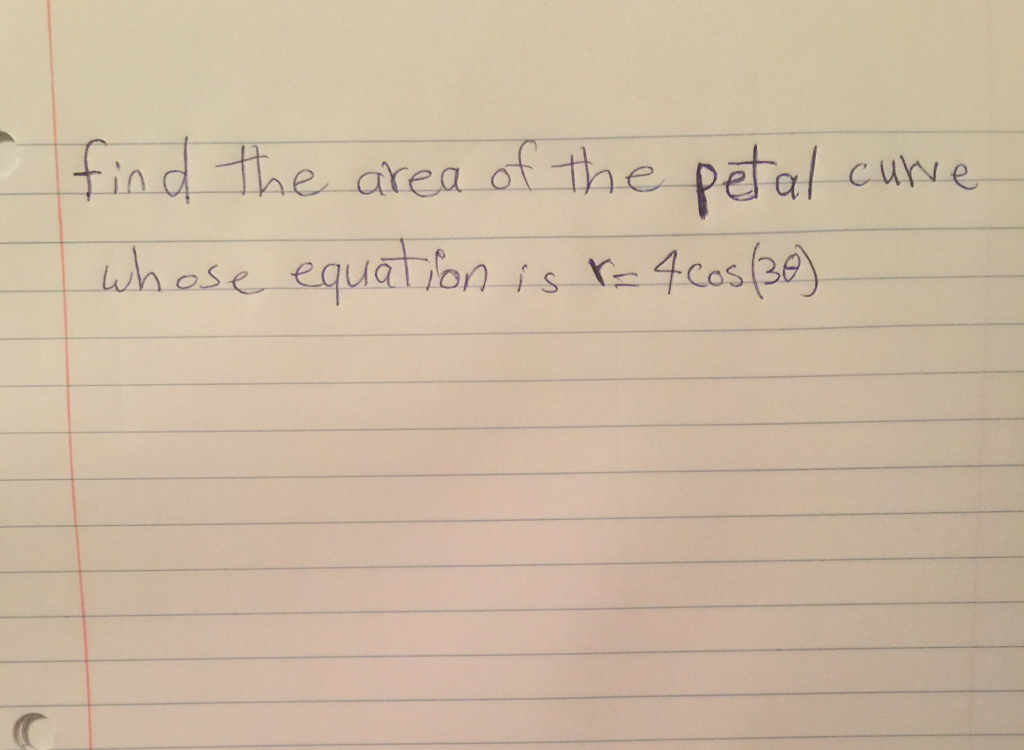 find the area of the petal curve
whose equation is r= 4cos(3θ)